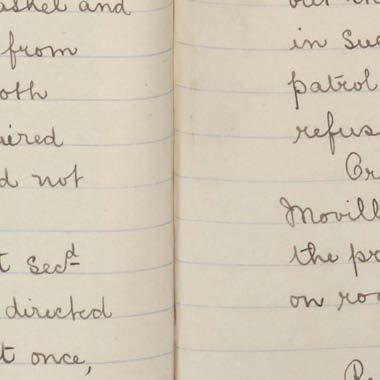 and
from
oth
ired
d not
t Secd
directed
t once,
in Suc
patrol
refus
Movill
the pr
on roa